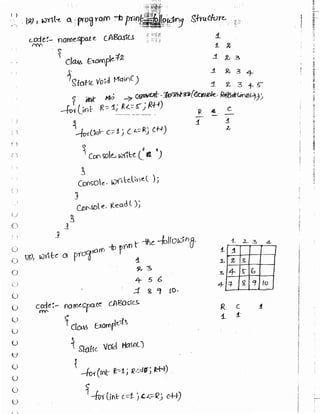 write a program to print following Structure.
code:- namespace CABasics
{
class Example72
{
Static Void Main()
{
for(int R=1; R<=5; R++)
{
for(int C=1; C<=R; C++)
{
Console.write(" ")
}
Console.writeLine( );
}
Console.Read( );
}
}
1
1 2
1 2 3
1 2 3 4
1 2 3 4 5
R C
1 1
2
write a program to print the following.
1
2 3
4 5 6
7 8 9 10.
1 2 3 4
1 1
2 2 3
3 4 5 6
4 7 8 9 10
code:- namespace CABasics
{
class Example
{
Static Void Main()
{
for(int R=1; R++)
{
for(int C=1; C<=R; C++)
R C
1 1